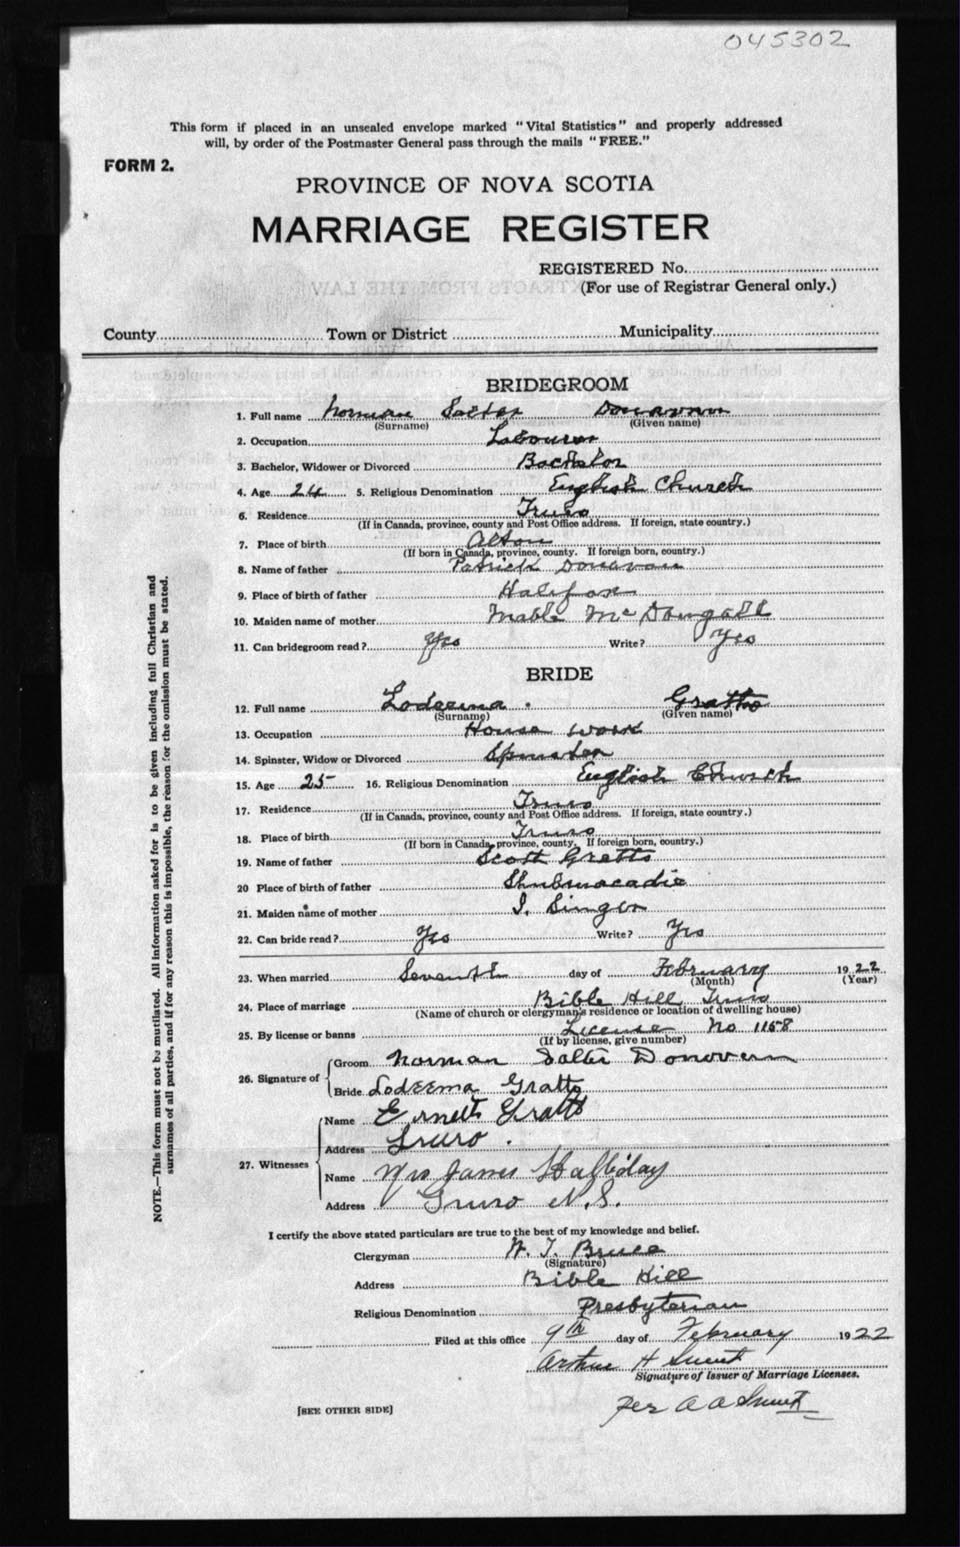 045302
This form if placed in an unsealed envelope marked "Vital Statistics" and properly addressed
will, by order of the Postmaster General pass through the mails "FREE."
FORM 2.
PROVINCE OF NOVA SCOTIA
MARRIAGE REGISTER
REGISTERED No.
(For use of Registrar General only.)
County Town or District Municipality
BRIDEGROOM
1. Full name Norman Salter Donavan
(Surname) (Given name)
2. Occupation Labourer
3. Bachelor, Widower or Divorced Bachelor
4. Age 24 5. Religious Denomination English Church
6. Residence Truro
(If in Canada, province, county and Post Office address. If foreign, state country.)
7. Place of birth Alton
(If born in Canada, province, county. If foreign born, country.)
8. Name of father Patrick Donavan
9. Place of birth of father Halifax
10. Maiden name of mother Mable McDougall
11. Can bridegroom read? Yes Write? Yes
BRIDE
12. Full name Lodeema Gratto
(Surname) (Given name)
13. Occupation House work
14. Spinster, Widow or Divorced Spinster
15. Age 25 16. Religious Denomination English Church
17. Residence Truro
(If in Canada, province, county and Post Office address. If foreign, state country.)
18. Place of birth Truro
(If born in Canada, province, county. If foreign born, country.)
19. Name of father Scott Gratto
20 Place of birth of father Shubenacadie
21. Maiden name of mother Singer
22. Can bride read? Yes Write? Yes
23. When married Seventh day of February 1922
(Month) (Year)
24. Place of marriage Bible Hill Truro
(Name of church or clergyman's residence or location of dwelling house)
25. By license or banns License No. 1158
(If by license, give number)
26. Signature of Groom Norman Salter Donovern
Bride Lodeema Gratto
27. Witnesses Name Ernest Gratto
Address Truro.
Name Mrs James Halliday
Address Truro N.S.
I certify the above stated particulars are true to the best of my knowledge and belief.
Clergyman W. T. Bruce
(Signature)
Address Bible Hill
Religious Denomination Presbyterian
Filed at this office 9th day of February 1922
Arthur H
Signature of Issuer of Marriage Licenses.
Per A A
[SEE OTHER SIDE]
NOTE.—This form must not be mutilated. All information asked for is to be given including full Christian and
surnames of all parties, and if for any reason this is impossible, the reason for the omission must be stated.